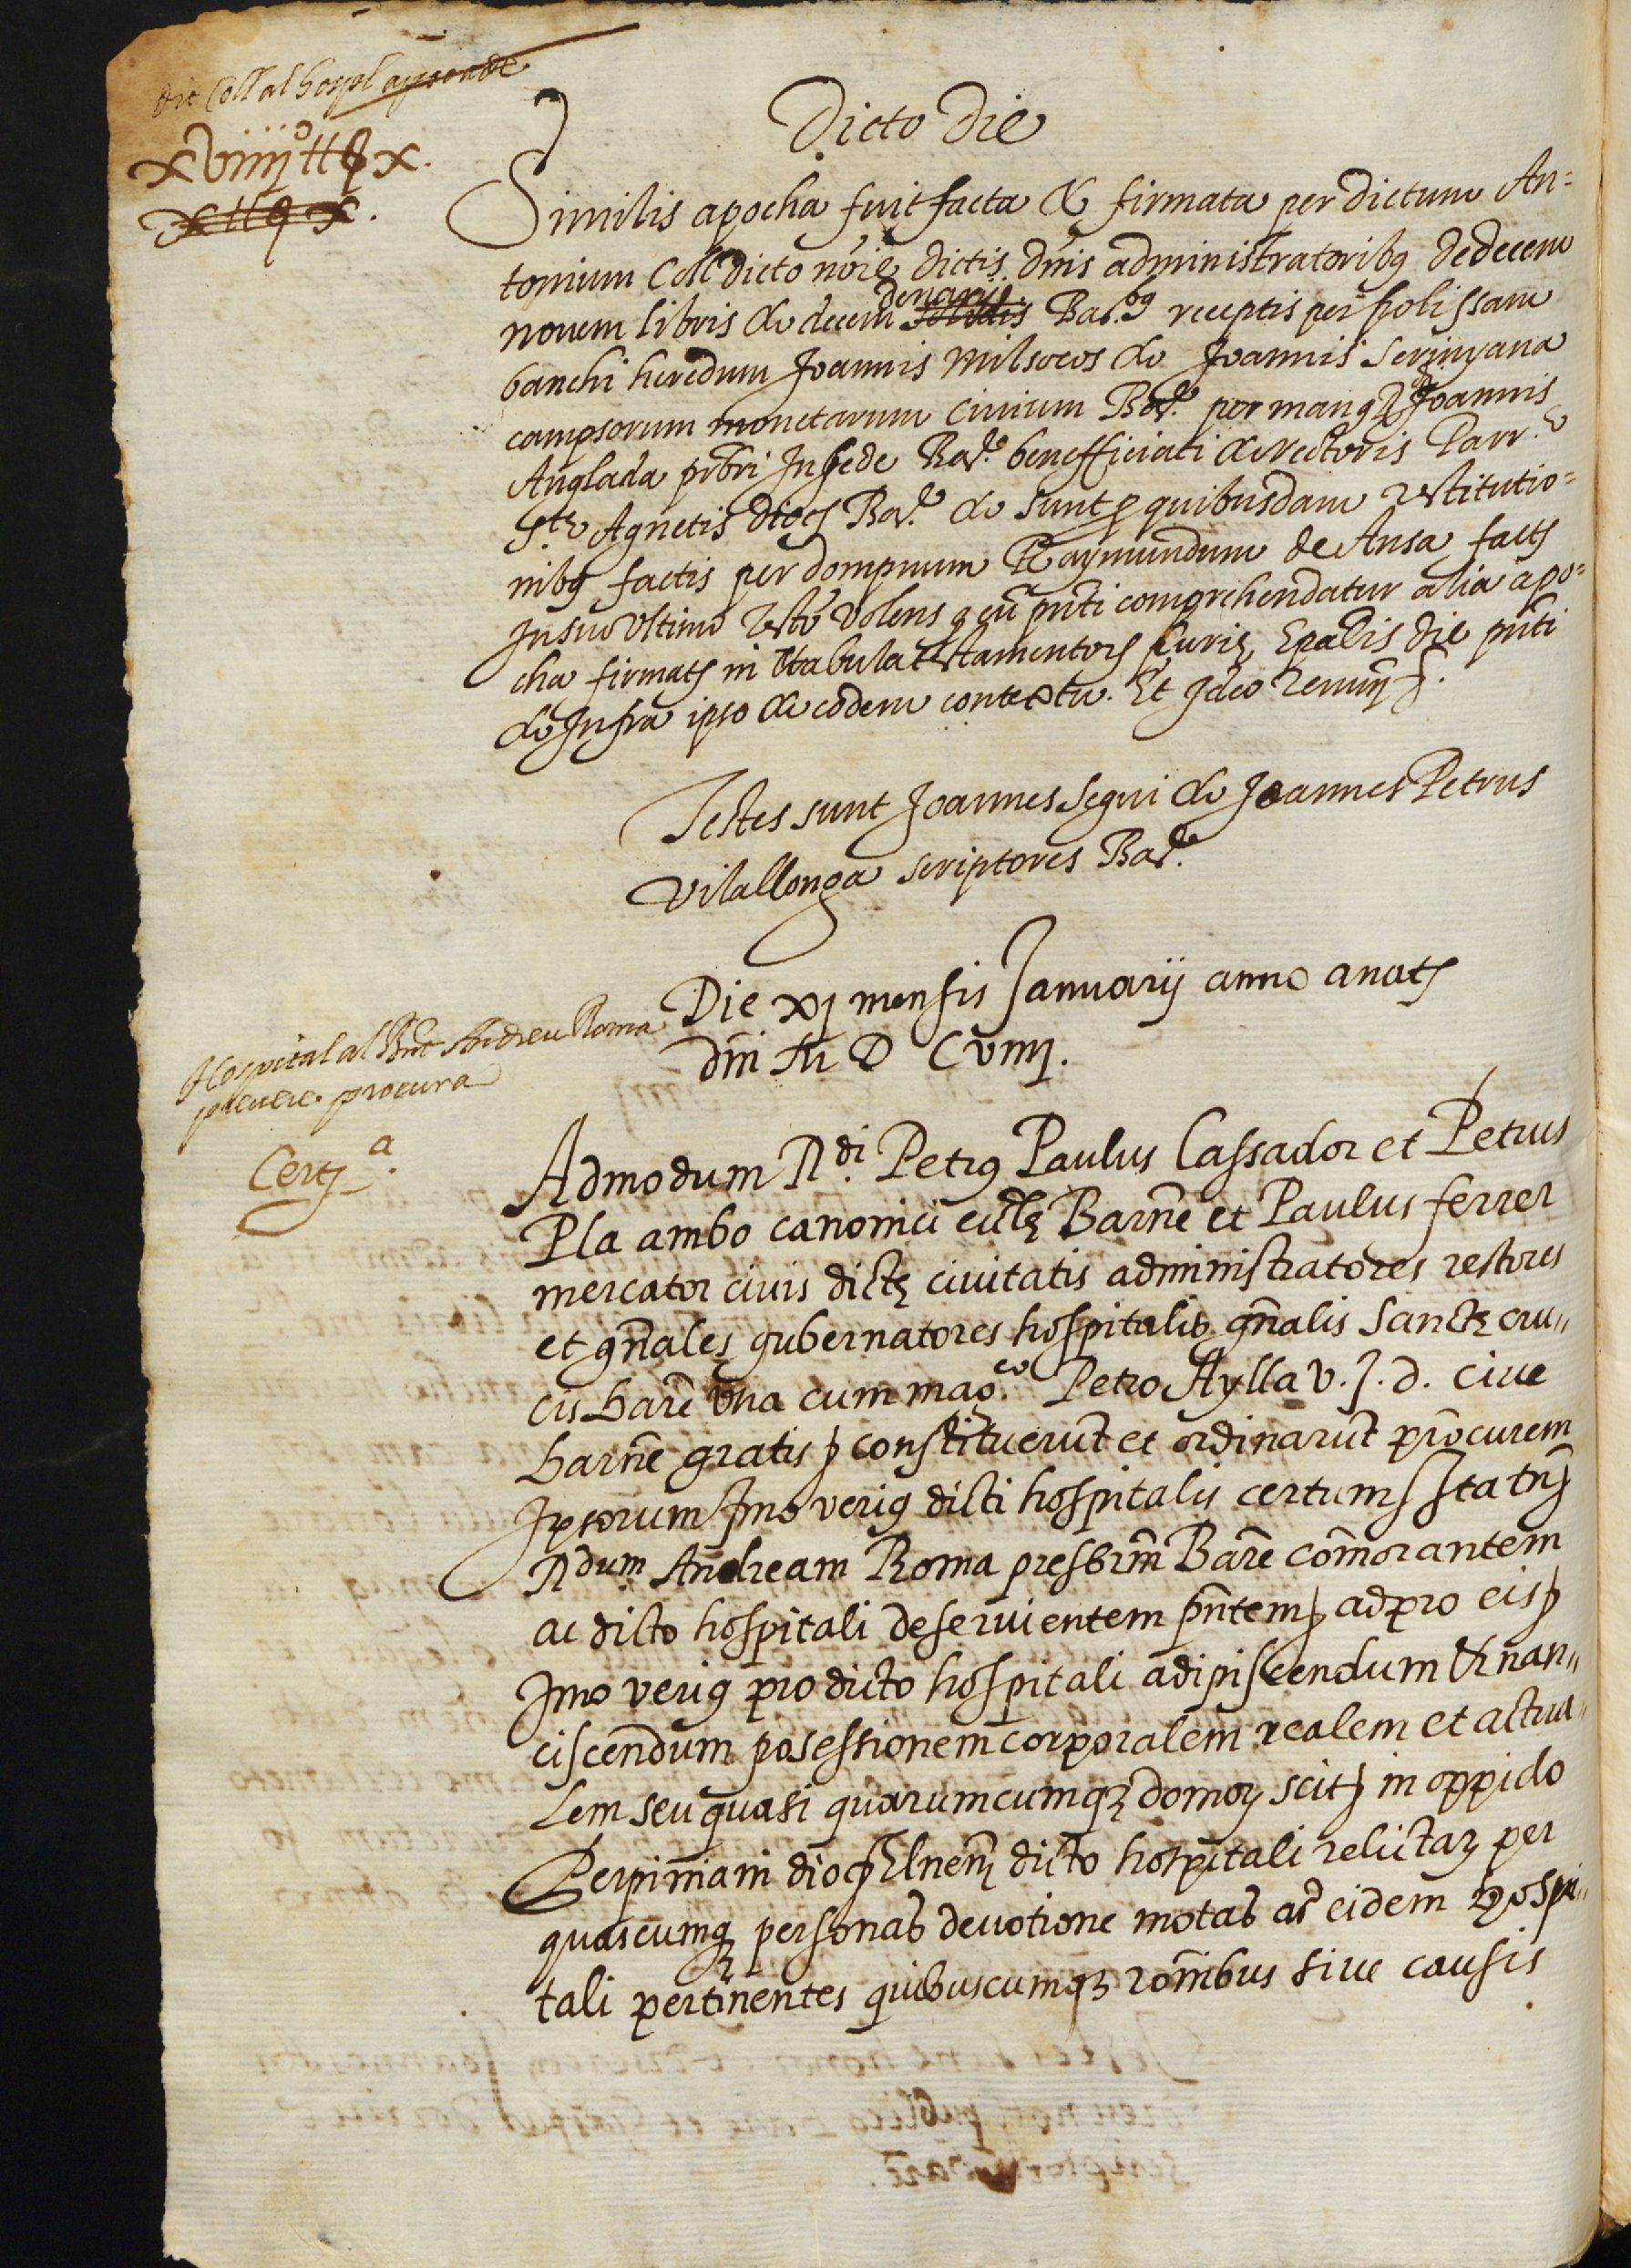 dit Coll al hospl apocade
xviiij ll ꝗ x.
x ll ꝗ x.
Dicto die
Similis apocha fuit facta & firmata per dictum An=
tonium Coll dicto noīe dictis dnīs administratoribꝰ de decem
novem libris & decem solidis denarijs Bar.bꝰ receptis per polissam
banchi heredum Joannis Milsocos & Joannis Serinyana
campsorum monetarum civium Bar.e per manꝰ R.di Joannis
Anglada pr̄bri In sede Bar.e benefficiati & rectoris Parr.e
S.te Agnetis diocs Bar.e & sunt ꝑ quibusdam restitutio=
nibꝰ factis per dompnum Raymundum de Ausa facts
In suo ultimo testō volens ꝙ cū pn̄ti comprehendatur alia apo=
cha firmats in tabula testamentors Curię Epālis die pn̄ti
& Infra ipso & eodem contextu. Et Ideo renunꝭ.
Testes sunt Joannes Segui & Joannes Petrus
Vilallonga scriptores Bar.e
Die xj mensis Januarij anno a natꝭ
dn̄i M D C viiij.
Hospital al Rnt Andreu Roma
prevere. procura
Certj.a
Admodum R.di Petrꝰ Paulus Cassador et Petrus
Pla ambo canonici eccl̄ę Barn̄e et Paulus ferrer
mercator civis dictę civitatis administratores rectores
et gn̄ales gubernatores hospitalis gn̄alis Sanctę cru„
cis barē una cum mag.co Petro Aylla V. J. d. cive
barn̄e gratis ꝭ constituerūt et ordinarūt procūrem
Ipsorum Imo veriꝰ dicti hospitalis certumꝭ Ita tn̄ꝭ
Rdum Andream Roma presbrm̄ Barē com̄orantem
ac dicto hospitali deservientem pn̄temꝭ ad pro eisꝭ
Imo veriꝰ pro dicto hospitali adipiscendum & nan„
ciscendum posessionem corporalem realem et actua„
lem seu quasi quarumcumqꝫ domoꝝ scitꝭ in oppido
Perpiniani diocꝭ Elnen̄ꝭ dicto hospitali relictaꝝ per
quascumqꝫ personas devotione motas ac eidem hospi„
tali pertinentes quibuscumqꝫ rōnibus sive causis